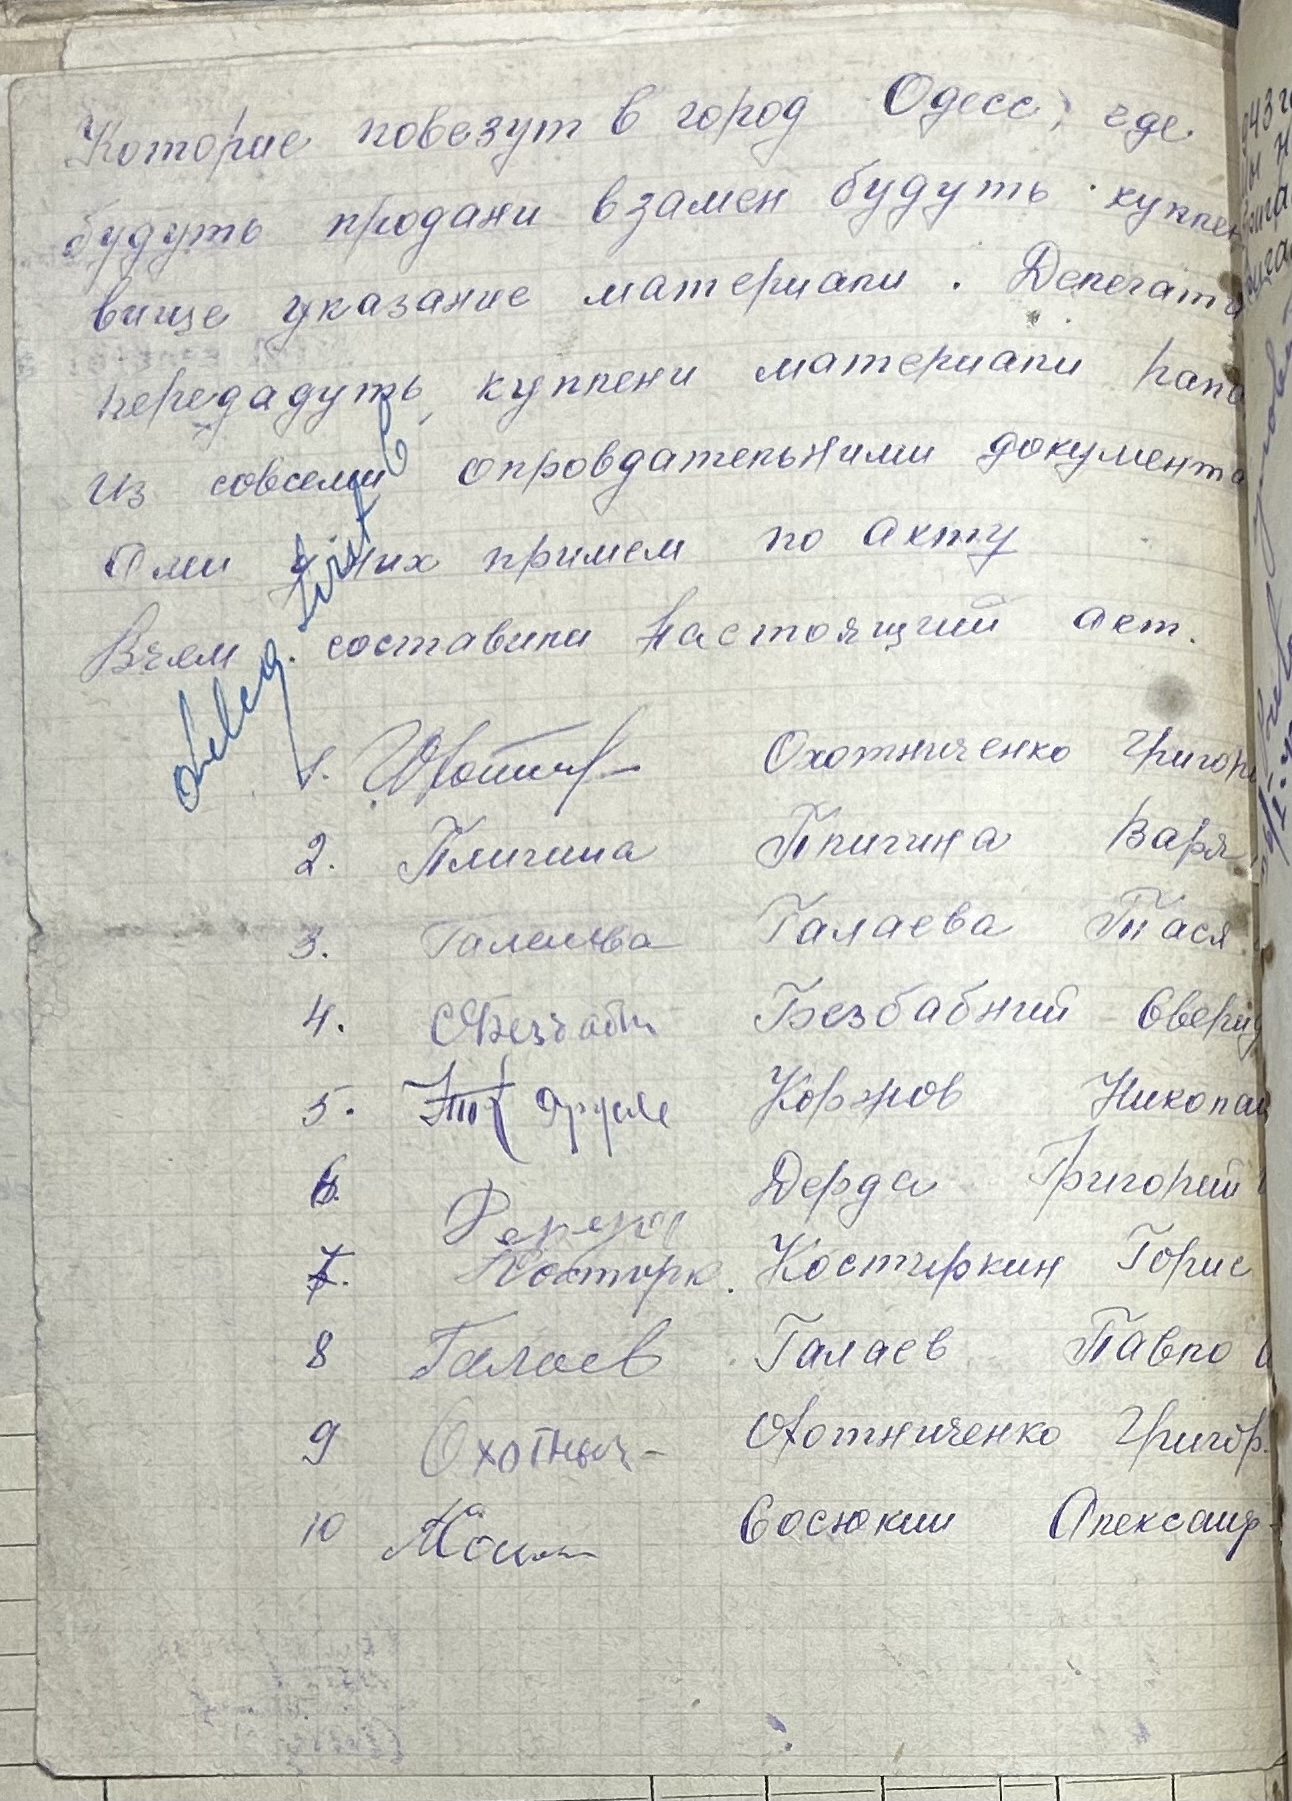 Которие повезут в город Одесс, где
будуть продани взамен будуть куплен
вище указание материали. Делегати
передадуть куплени материали
из совсеми сопровдательними документа
Оми у них примем по акту
Вчем составили настоящий акт.
1. Охотниченко Григори
2. Пличина Пличина Варя
3. Галаева Галаева Тася
4. Безбабний
5. Коржов Николай
6. Дерда Григорий
7. Костирк. Костиркин Борис
8 Галаев Галаев Павло
9 Охотнич- Охотниченко Григор.
10 Сосюкин Александ